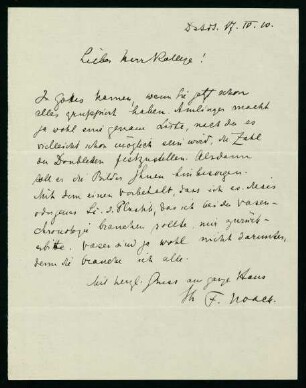 Lieber Herr Kollege!
In Gottes Namen, wenn Sie jetzt schon
alles gruppiert haben. Amlinger macht
ja wohl eine genaue Liste, nach der es
vielleicht schon möglich sein wird, die Zahl
an Doubletten festzustellen. Alsdann
soll er die Bilder Ihnen hinbesorgen.
Mit dem einen Vorbehalt, dass ich es
ich bei der Vasen-
chronologie brauchen sollte, mir zurück-
erbitte. Vasen sind ja wohl nicht darunter,
denn die brauche ich alle.
Mit herzl. Gruss an ganze Haus
Ihr F. Noack.